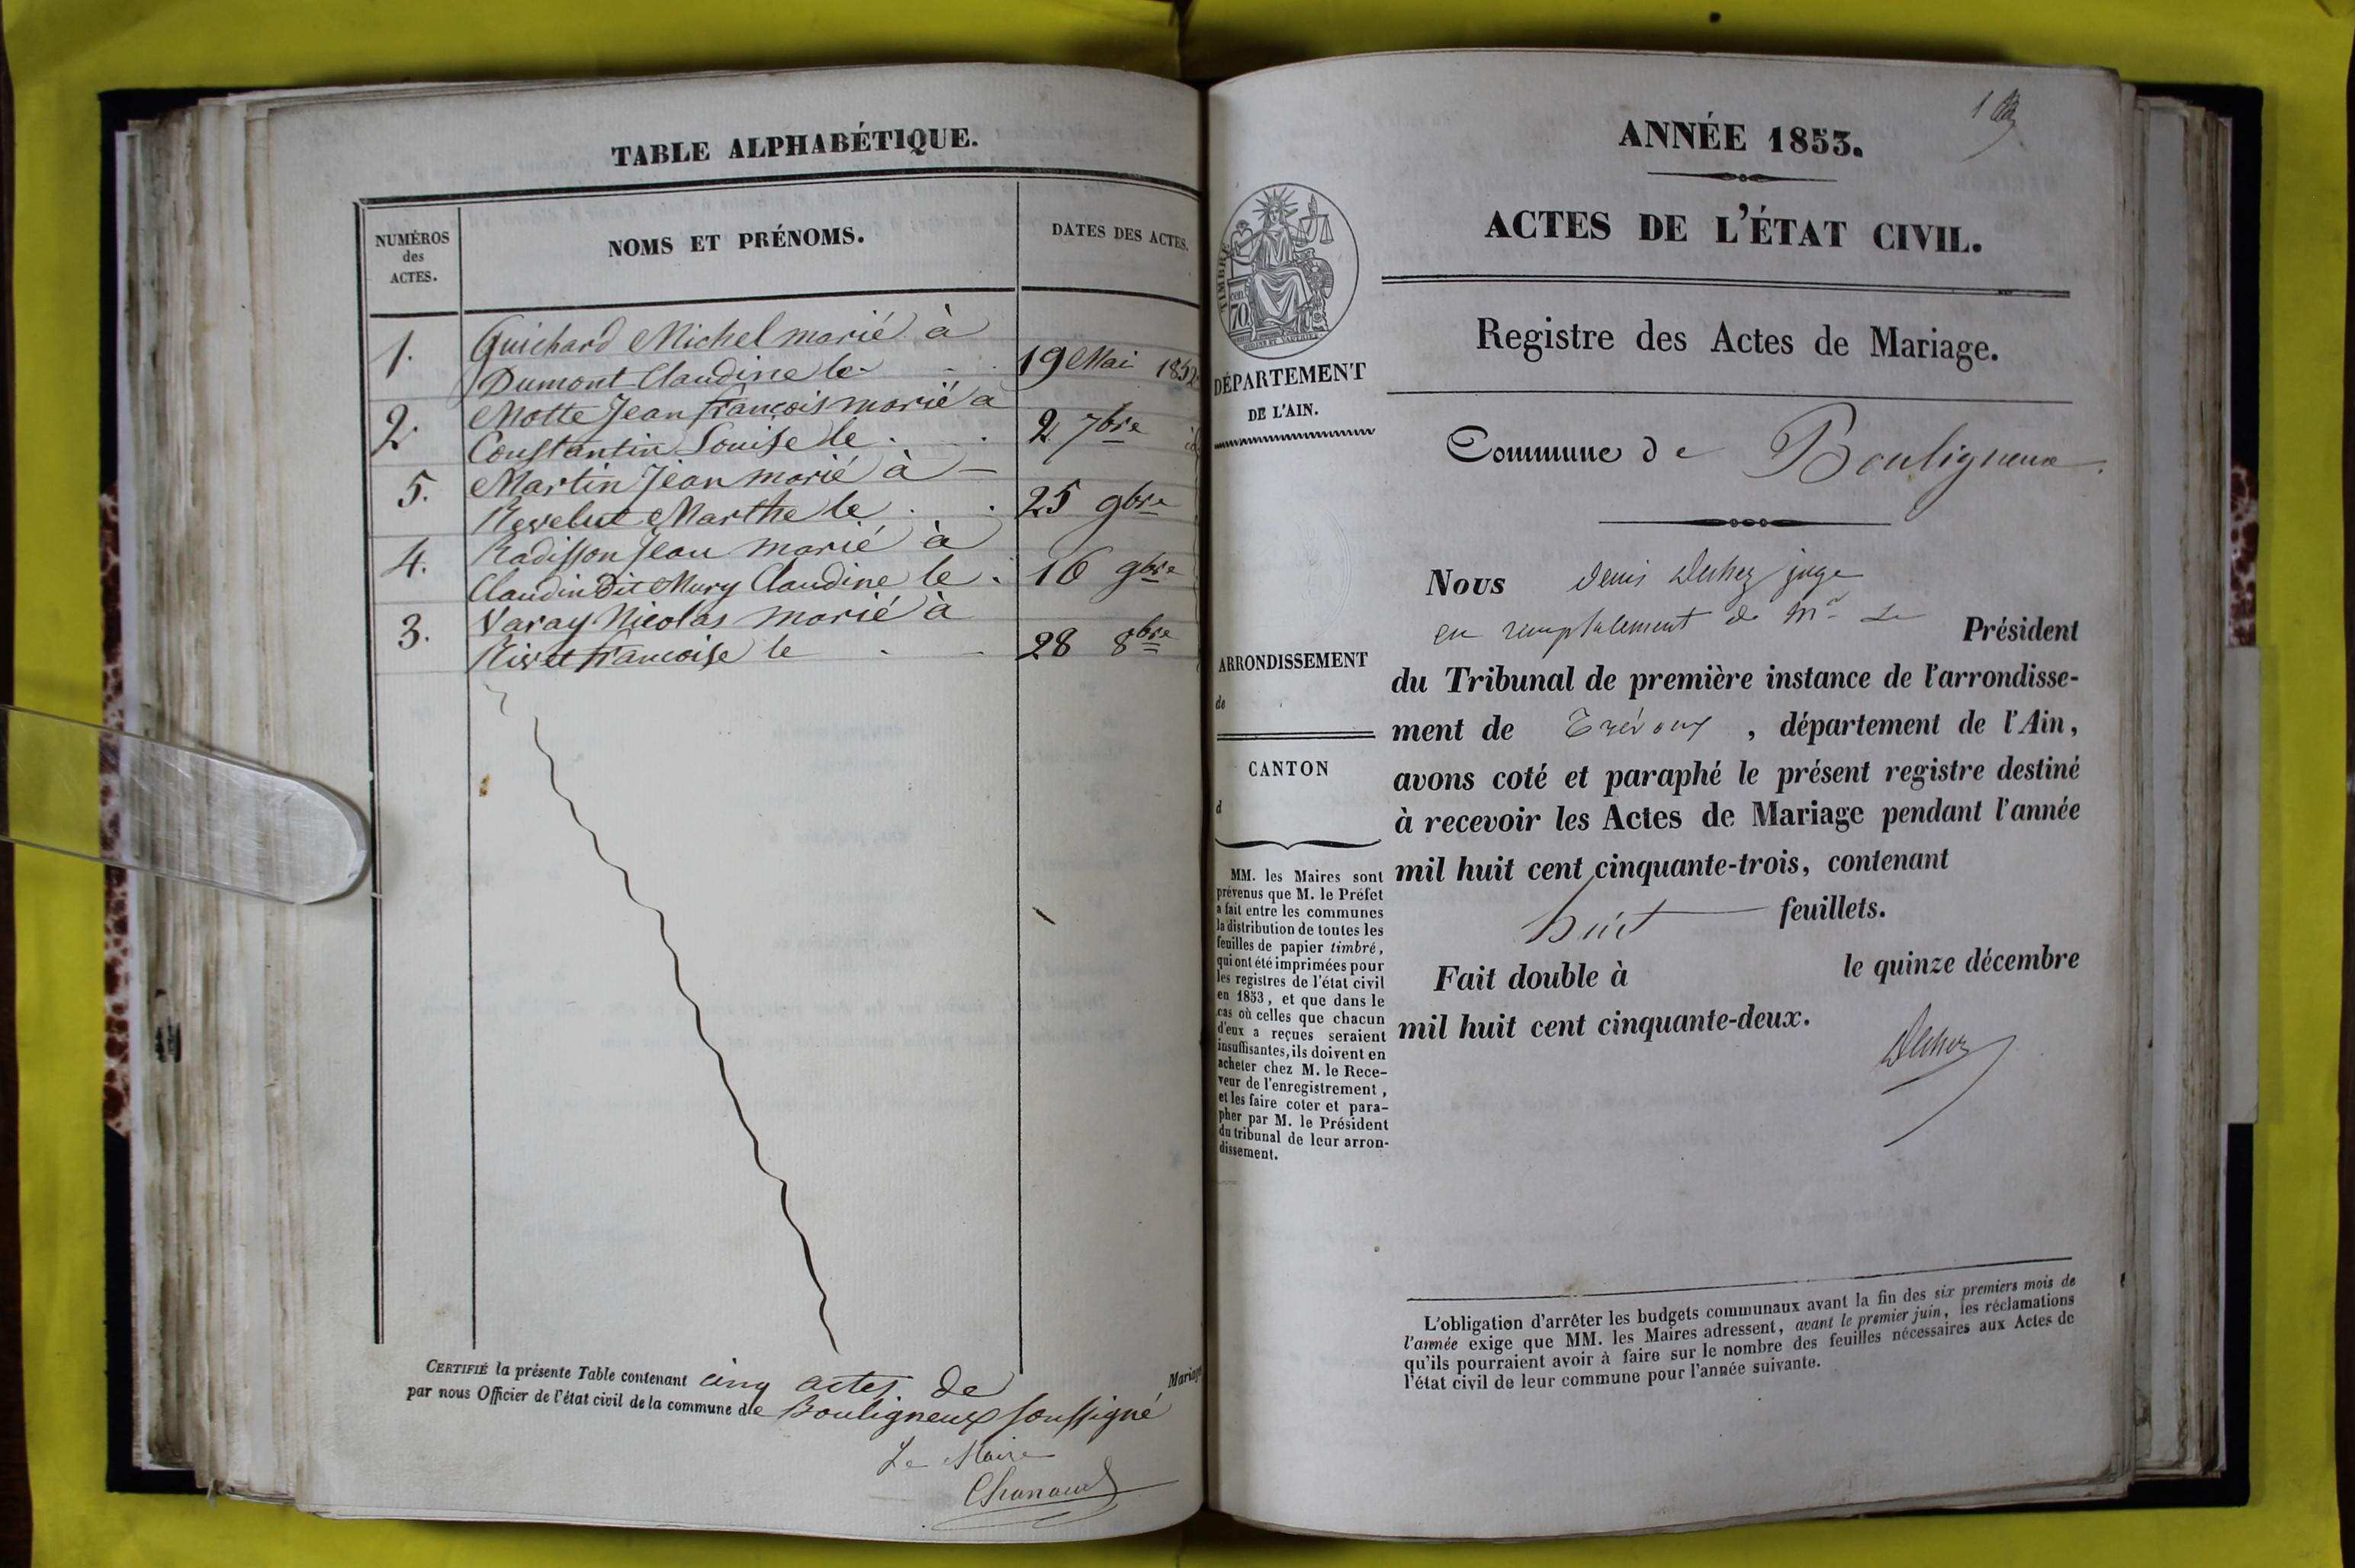 TABLE ALPHABÉTIQUE.
NUMÉROS
des
ACTES.
NOMS ET PRÉNOMS.
DATES DES ACTES.
1. Guichard Michel marié à
Dumont Claudine le 19 Mai 1852
2. Motte Jean françois marié à
Constantin Louise le 2 7bre
5. Martin Jean marié à
Marthe le 25 9bre
4. Radisson Jean marié à
Claudin Dit Mury Claudine le 16 9bre
3. Varay Nicolas marié à
Rivet francoise le 28 8bre
CERTIFIÉ la présente Table contenant cinq actes de Mariage
par nous Officier de l'état civil de la commune de Bouligneux soussigné
Le Maire
1
ANNÉE 1853.
ACTES DE L'ÉTAT CIVIL.
TIMBRE
70
Registre des Actes de Mariage.
DÉPARTEMENT
DE L'AIN.
Commune de Bouligneux.
Nous Denis juge
en remplacement de Mr Le Président
du Tribunal de première instance de l'arrondisse-
ment de Trévoux, département de l'Ain,
avons coté et paraphé le présent registre destiné
à recevoir les Actes de Mariage pendant l'année
mil huit cent cinquante-trois, contenant
huit feuillets.
Fait double à le quinze décembre
mil huit cent cinquante-deux.
ARRONDISSEMENT
de
CANTON
d
MM. les Maires sont
prévenus que M. le Préfet
a fait entre les communes
la distribution de toutes les
feuilles de papier timbré,
qui ont été imprimées pour
les registres de l'état civil
en 1853, et que dans le
cas où celles que chacun
d'eux a reçues seraient
insuffisantes, ils doivent en
acheter chez M. le Rece-
veur de l'enregistrement,
et les faire coter et para-
pher par M. le Président
du tribunal de leur arron-
dissement.
L'obligation d'arrêter les budgets communaux avant la fin des six premiers mois de
l'année exige que MM. les Maires adressent, avant le premier juin, les réclamations
qu'ils pourraient avoir à faire sur le nombre des feuilles nécessaires aux Actes de
l'état civil de leur commune pour l'année suivante.